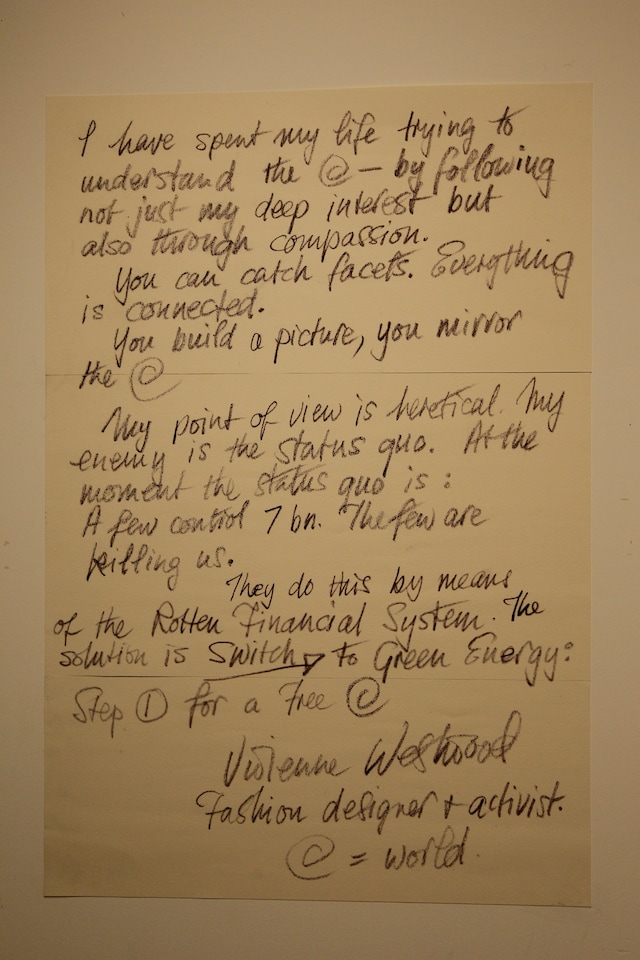 I have spent my life trying to
understand the @ — by following
not just my deep interest but
also through compassion.
You can catch facets. Everything
is connected.
You build a picture, you mirror
the @
My point of view is heretical. My
enemy is the status quo. At the
moment the status quo is :
A few control 7 bn. The few are
killing us.
They do this by means
of the Rotten Financial System. The
solution is Switch → to Green Energy:
Step ① for a Free @
Vivienne Westwood
Fashion designer + activist.
@ = world.